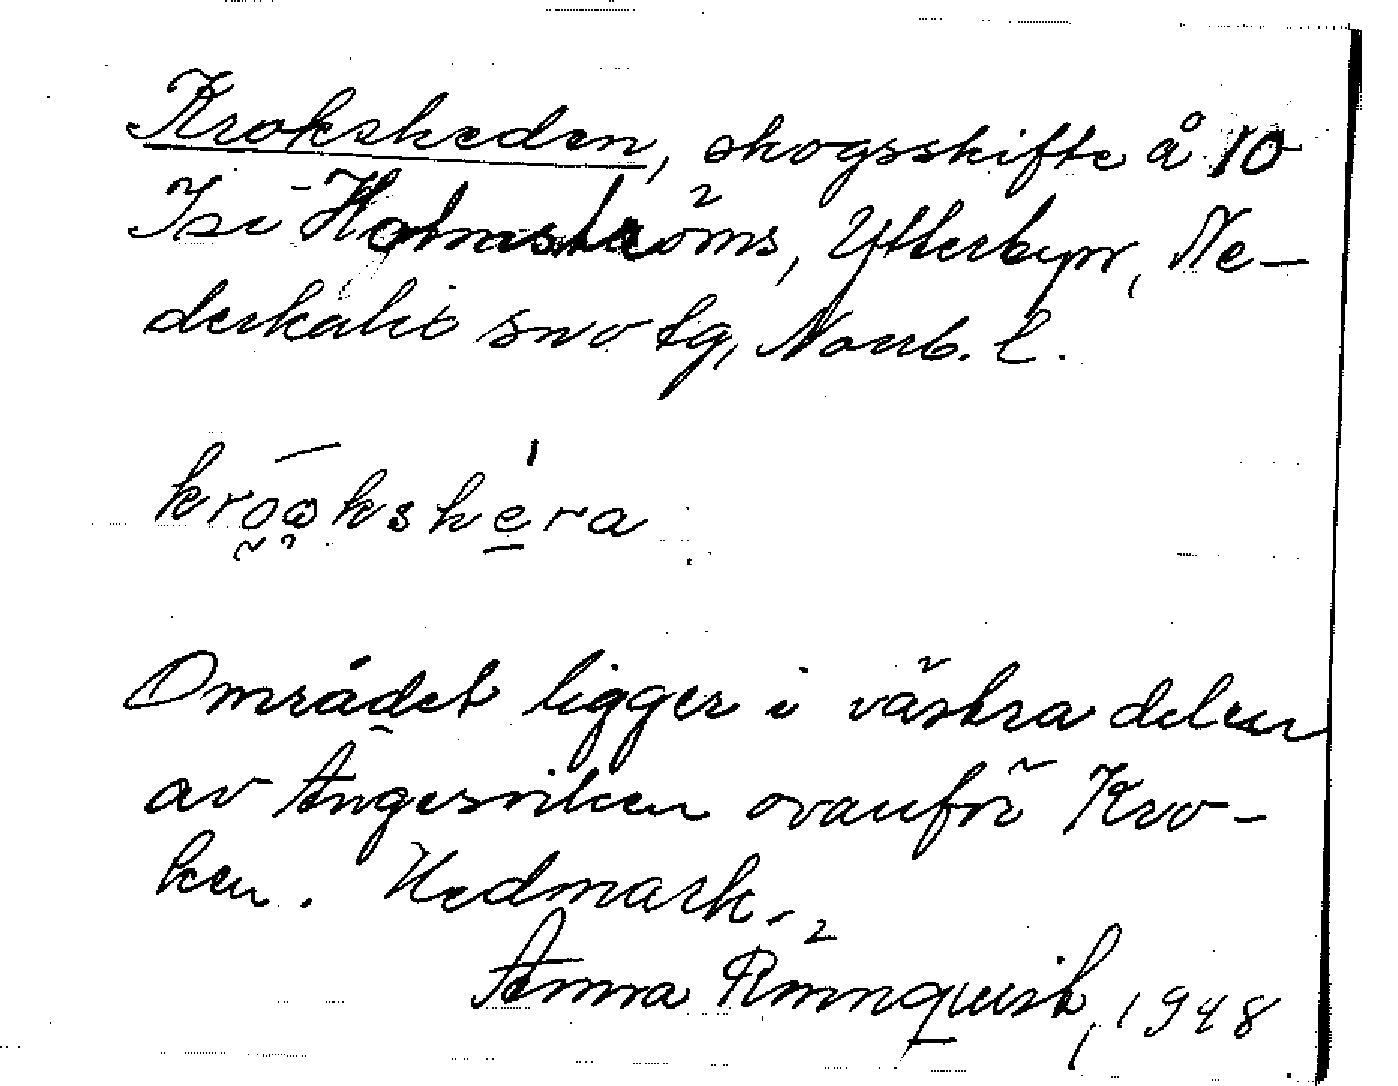 Kroksheden, skogsskifte å 10
Isi-Holmströms, Ytterbyn, Ne-
derkalix snv o tg, Norrb. l.
krookshera
Området ligger i västra delen
av Ängesviken ovanför Kro-
ken. Hedmark.
Anna Rönnquist, 1948